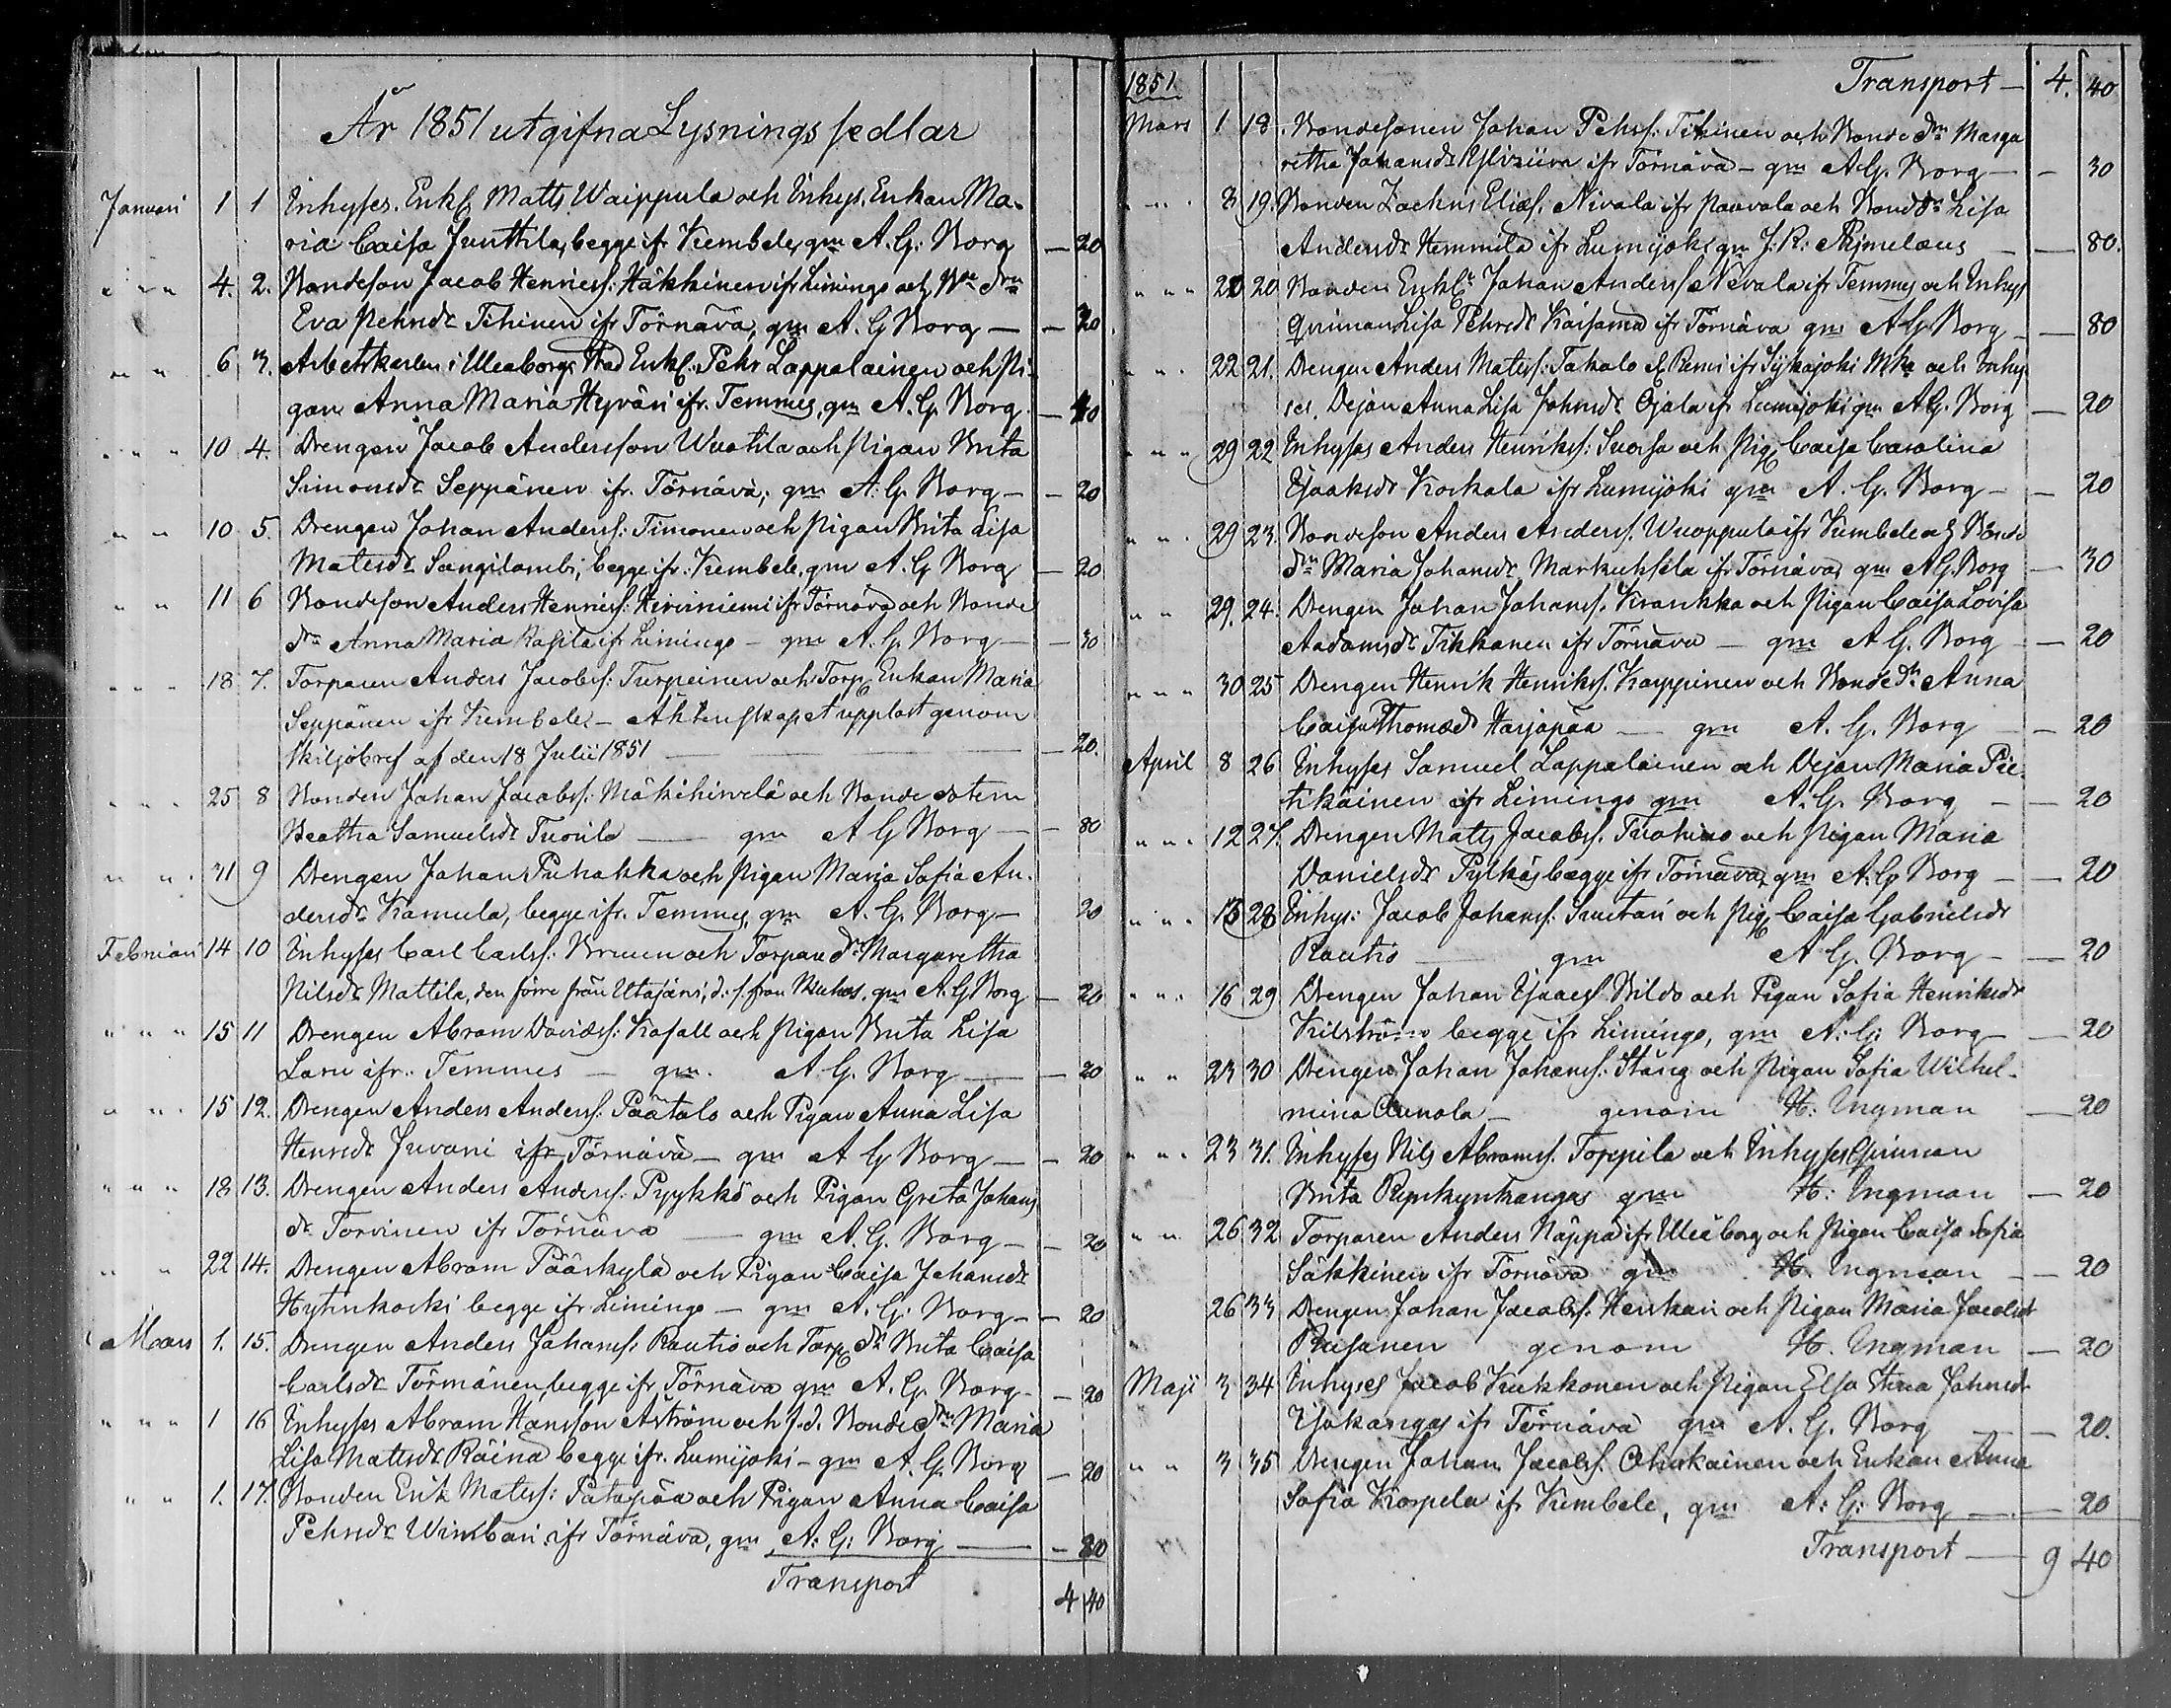 År 1851 utgifna Lysnings sedlar
Januari 1 1 Inhyses Enkl. Matts Waippula och Inhys. Enkan Ma-
ria Caisa Junttila, begge ifr Kembele, gm A. G. Borg — 20
" " " 4. 2. Bondeson Jacob Henricss: Häkkinen ifr Limingo och Bde dtrn
Eva Pehrsdr Tihinen ifr Törnävä, gm A. G Borg — 30
" " 6 3. Arbetskarlen i Uleåborgs Stad Enkl. Pehr Lappalainen och Pi-
gan Anna Maria Hyväri ifr. Temmes, gm A. G. Borg — 40
" " " 10 4. Drengen Jacob Andersson Wuotila och Pigan Brita
Simonsdr Seppänen ifr. Törnävä, gm A. G. Borg — 20
" " 10 5. Drengen Johan Anderss: Timonen och Pigan Brita Lisa
Matsdr Sangilambi, begge ifr. Kembele, gm A. G Borg — 20
" " 11 6 Bondeson Anders Henricss: Hirviniemi ifr Törnävä och Bonde
dtrn Anna Maria Rasila ifr Limingo — gm A. G. Borg — 30
" " " 18 7. Torparen Anders Jacobss: Turpeinen och Torp. Enkan Maria
Seppänen ifr Kembele — Äktenskapet upplöst genom
Skiljobref af den 18 Julii 1851 — 20.
" " " 25 8 Bonden Johan Jacobss: Mäkihirvelä och Bonde dotern
Beatha Samuelsdr Tuorila — gm A G Borg — 80
" " 31 9 Drengen Johan Puhakka och Pigan Maria Sofia An-
dersdr Kamula, begge ifr. Temmes, gm A. G. Borg — 20
Februari 14 10 Inhyses Carl Carlss: Bruun och Torpare dr Margaretha
Nilsdr Mattila, den förre från Utajärvi, d. s. från Muhos, gm A. G Borg — 20
" " " 15 11 Drengen Abram Davidss: Kasall och Pigan Brita Lisa
Laru ifr. Temmes — gm. A. G. Borg — 20
" " 15 12. Drengen Anders Anderss: Päätalo och Pigan Anna Lisa
Henrsdr Juvani ifr Törnävä — gm A G Borg — 20
" " " 18 13. Drengen Anders Anderss: Pyykkö och Pigan Greta Johans
dr Torvinen ifr Törnävä — gm A. G. Borg — 20
" " 22 14. Drengen Abram Pääskylä och Pigan Caisa Johansdr
Hytinkoski begge ifr Limingo — gm A. G. Borg — 20
Mars 1. 15. Drengen Anders Johanss: Rautio och Torp. dr Brita Caisa
Carlsdr Törmänen, begge ifr Törnävä gm A. G. Borg — 20
" " " 1 16 Inhyses Abram Hansson Åström och f.d. Bonde dtrn Maria
Lisa Mattsdr Räinä begge ifr. Lumijoki — gm A. G. Borg — 20
" " 1. 17. Bonden Erik Matss: Patapää och Pigan Anna Caisa
Pehrsdr Wimbari ifr Törnävä, gm A. G: Borg — 80
Transport 4 40
1851
Transport — 4. 40
Mars 1 18. Bondesonen Johan Pehrs: Tihinen och Bonde dtrn Marga
retha Johansdr Ylisiirva ifr Törnävä — gm A. G. Borg — 30
" " " 8 19. Bonden Zachris Eliass. Nivala ifr Paavola och Bond dtr Lisa
Andersdr Hemmilä ifr Lumijoki gm J: R: Aejmelæus — 80.
" " " 22 20 Bonden Enkl. Johan Anderss Nevala ifr Temmes och Inhys
Qvinnan Lisa Pehrsdr Kaisama ifr Törnävä gm A G. Borg — 80
" " 22 21. Drengen Anders Matss: Takalo el. Remi ifr Siikajoki Mka och Inhy-
ses. Dejan Anna Lisa Johnsdr Ojala ifr Lumijoki gm A G. Borg — 20
" " " 29 22 Inhyses Anders Henrikss: Suorsa och Pig. Caisa Carolina
Isaksdr Korkala ifr Lumijoki gm A. G. Borg — 20
" " 29 23. Bondeson Anders Anderss. Wuoppula ifr Kembele och Bonde
dtrn Maria Johansdr Markuksela ifr Törnävä gm A G. Borg — 30
" " 29. 24. Drengen Johan Johanss. Krankka och Pigan Caisa Lovisa
Aadamsdr Tikkanen ifr Törnävä — gm A G. Borg — 20
" " " 30 25 Drengen Henrik Henrikss. Karppinen och Bonde dtr Anna
Caisa Thomasdr Harjapää — gm A. G. Borg — 20
April 8 26 Inhyses Samuel Lappalainen och Dejan Maria Pie-
tikäinen ifr Limingo gm A. G. Borg — 20
" " " 12 27. Drengen Matts Jacobss. Turhino och Pigan Maria
Danielsdr Pylkäs begge ifr Törnävä, gm A. G Borg — 20
" " " 15 28 Inhys: Jacob Johanss. Suutari och Pig. Caisa Gabrielsdr
Rautio — gm A G. Borg — 20
" " " 16 29 Drengen Johan Isacss. Bildo och Pigan Sofia Henriksdr
Kilström begge ifr Limingo, gm A. G: Borg — 20
" " 23 30 Drengen Johan Johanss. Stång och Pigan Sofia Wilhel-
mina Aunola — genom H: Ingman — 20
" " " 23 31. Inhyses Nils Abramss. Toppila och Inhyses Qvinnan
Brita Rynkynkangas gm H: Ingman — 20
" " 26 32 Torparen Anders Näppä ifr Uleåborg och Pigan Caisa Sofia
Säkkinen ifr Törnävä gm H. Ingman — 20
26 33 Drengen Johan Jacobss. Henkari och Pigan Maria Jacobsdr
Rusanen genom H. Ingman — 20
Maji 3 34 Inhyses Jacob Kukkonen och Pigan Elsa Stina Johnsdr
Isokangas ifr Törnävä gm A. G. Borg — 20.
" " 3 35 Drengen Johan Jacobss. Ohukainen och Enkan Anna
Sofia Korpela ifr Kembele, gm A: G: Borg — 20
Transport — 9 40